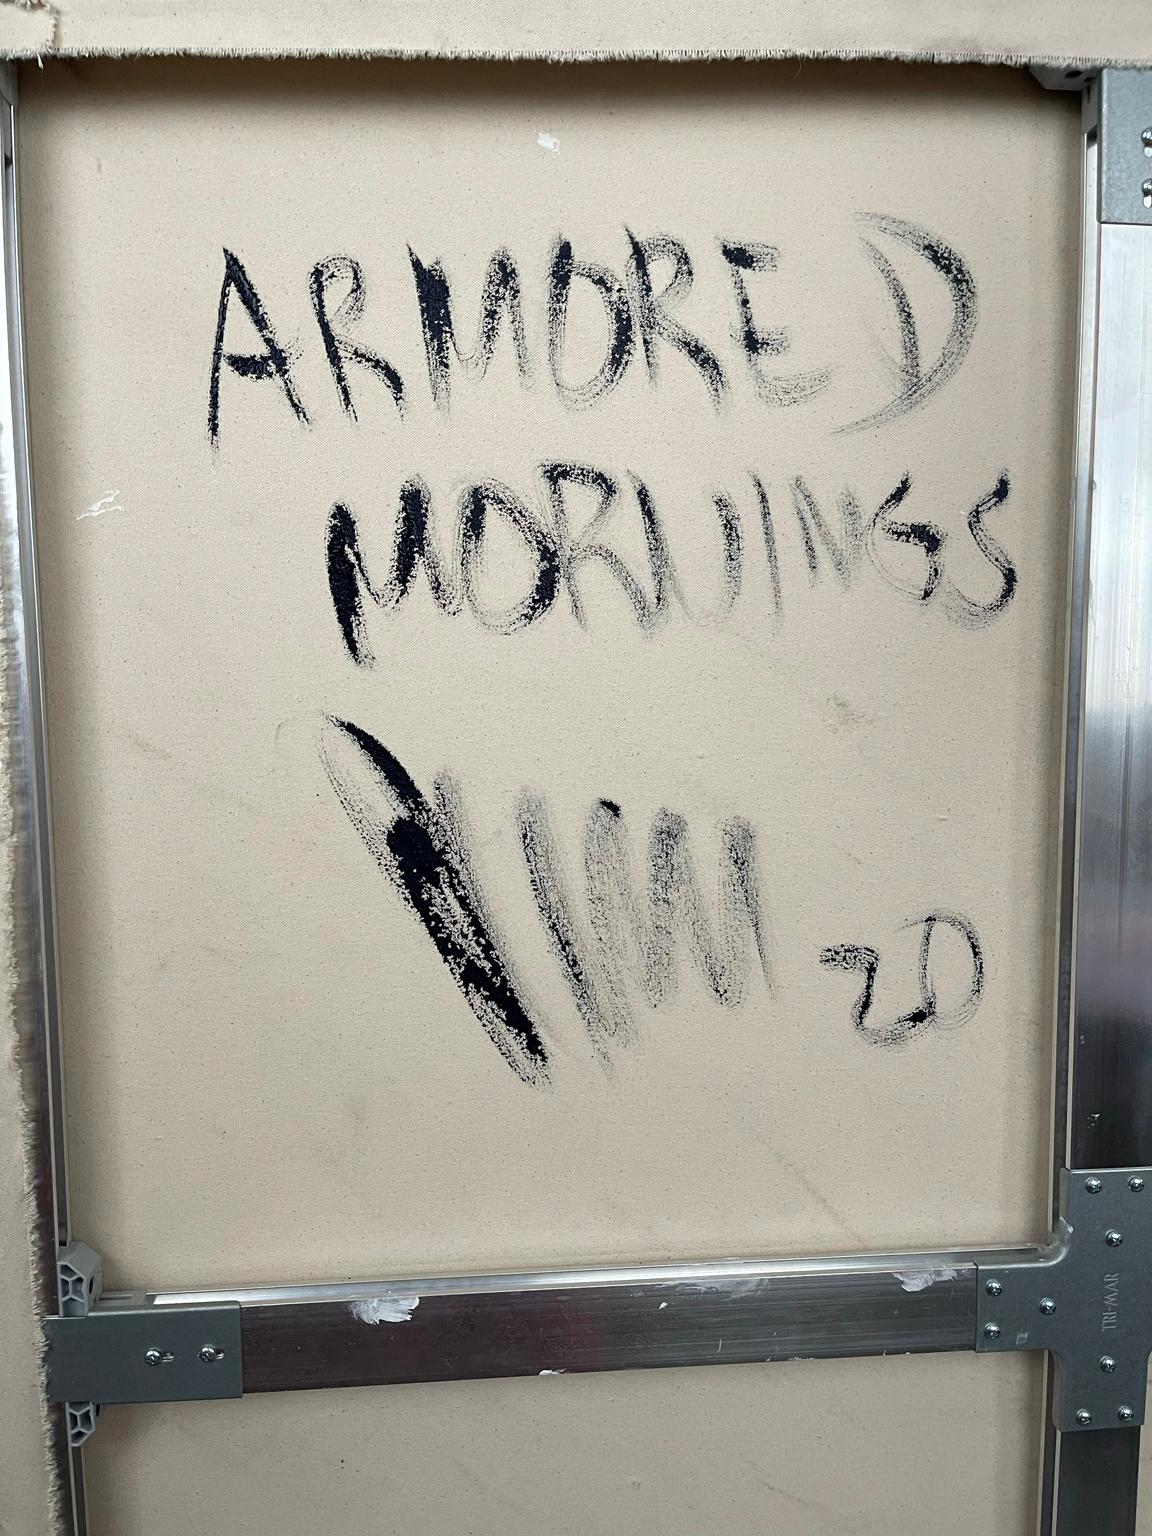 ARMORED
MORNINGS
20
TRI-MAR